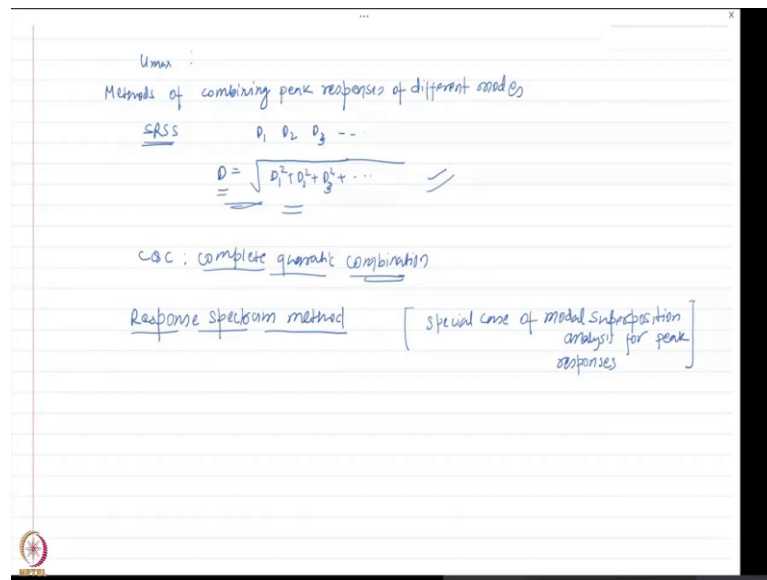 Umax :
Methods of combining peak responses of different modes
SRSS D₁ D₂ D₃ ---
D = √D₁²+D₂²+D₃²+ ···
CQC : complete quaratic combination
Response spectrum method [special case of modal superposition
analysis for peak
responses]
NPTEL